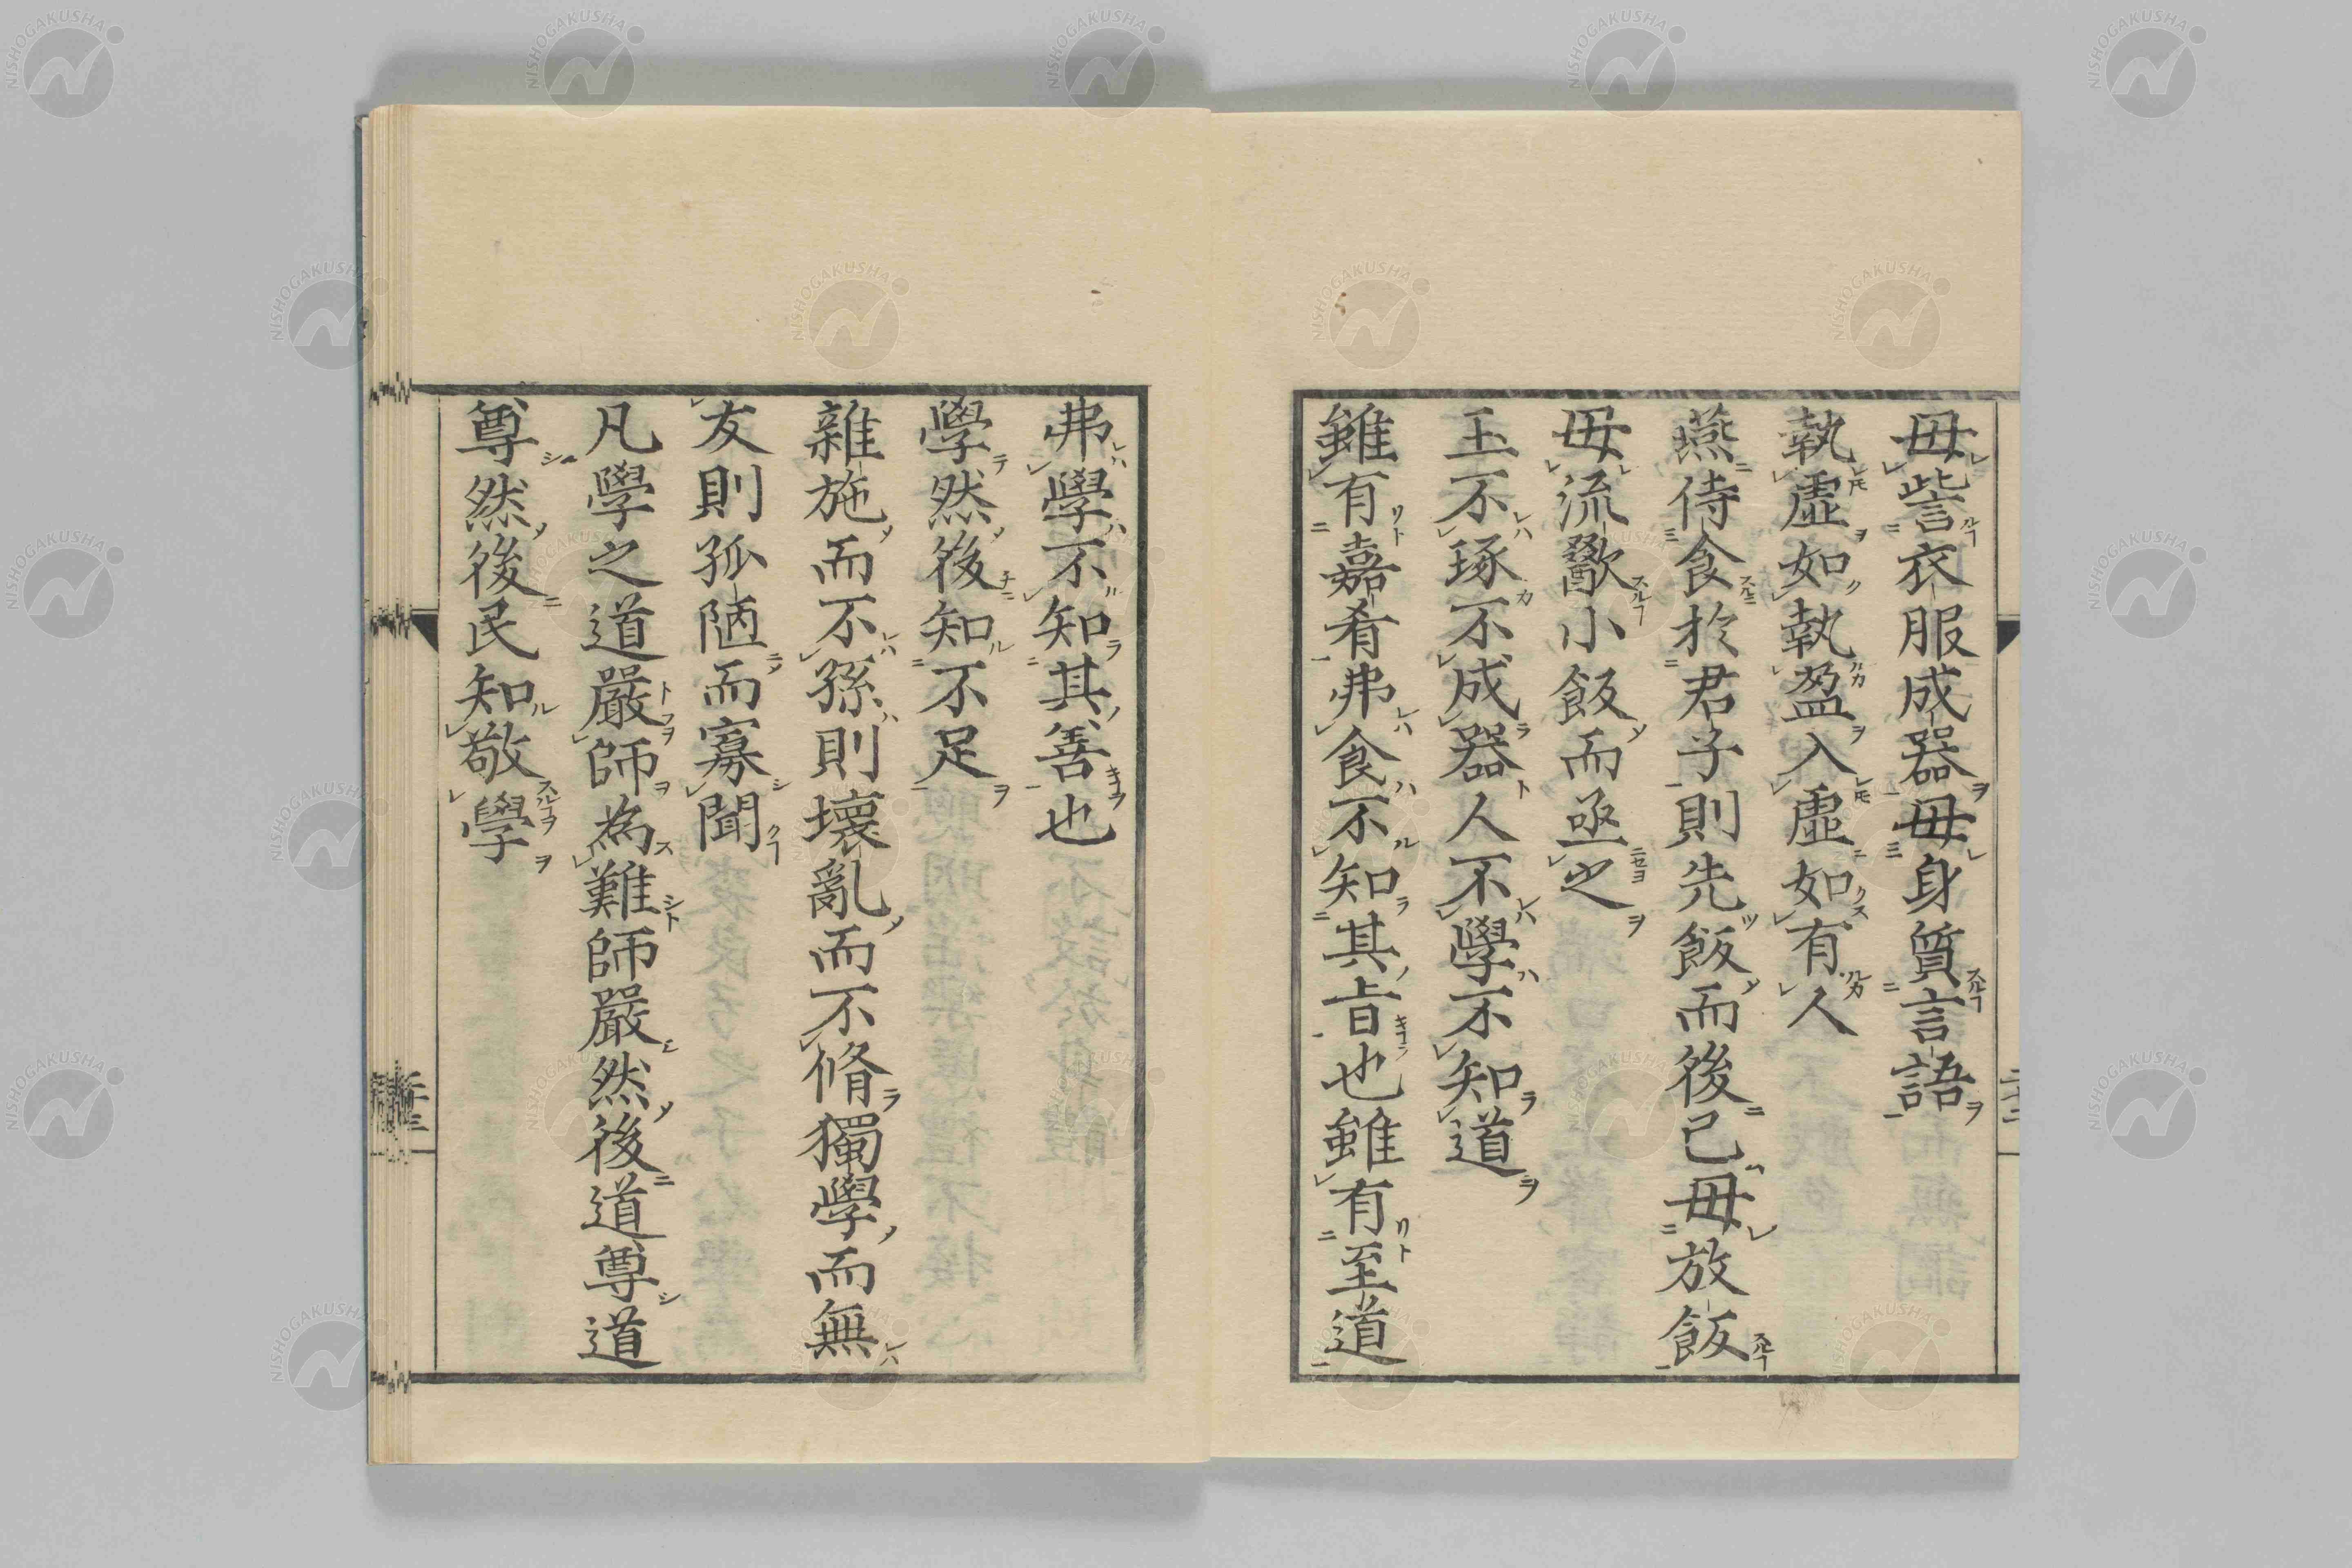 毋訾衣服成器毋身質言語
執虛如執盈入虛如有人
燕侍食於君子則先飯而後己毋放飯
毋流歠小飯而亟之
玉不琢不成器人不學不知道
雖有嘉肴弗食不知其旨也雖有至道
弗學不知其善也
學然後知不足
雜施而不孫則壞亂而不脩獨學而無
友則孤陋而寡聞
凡學之道嚴師為難師嚴然後道尊道
尊然後民知敬學